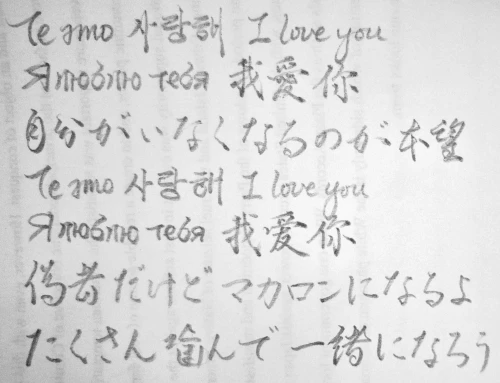 Te amo 사랑해 I love you
Я люблю тебя 我愛你
自分がいなくなるのが本望
Te amo 사랑해 I love you
Я люблю тебя 我爱你
偽者だけど マカロンになるよ
たくさん噛んで 一緒になろう